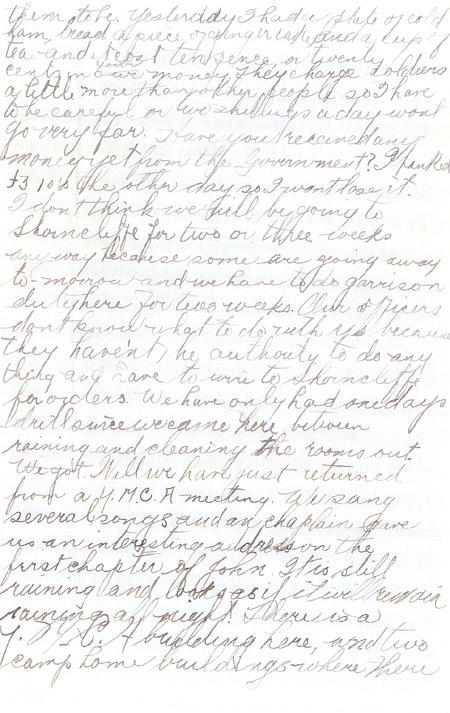 them to be. Yesterday I had a plate of cold
ham, bread a piece of ginger cake and a cup of
tea and it cost ten pence, or twenty
cents in our money. They charge soldiers
a little more than other people so I have
to be careful or two shillings a day wont
go very far. Have you received any
money yet from the Government? I banked
£3 10s the other day so I wont lose it.
I dont think we will be going to
Shorncliffe for two or three weeks
any way because some are going away
to-morrow and we have to do garrison
duty here for two weeks. Our officers
dont know what to do with us because
they havent the authority to do any
thing and have to write to Shorncliffe
for orders. We have only had one days
drill since we came here between
raining and cleaning the rooms out.
We got. Well we have just returned
from a Y.M.C.A meeting. We sang
several songs and an chaplain gave
us an interesting address on the
first chapter of John. It is still
raining and looks as if it will
raining all night. There is a
Y. M. C. A building here, and two
camp home buildings where there